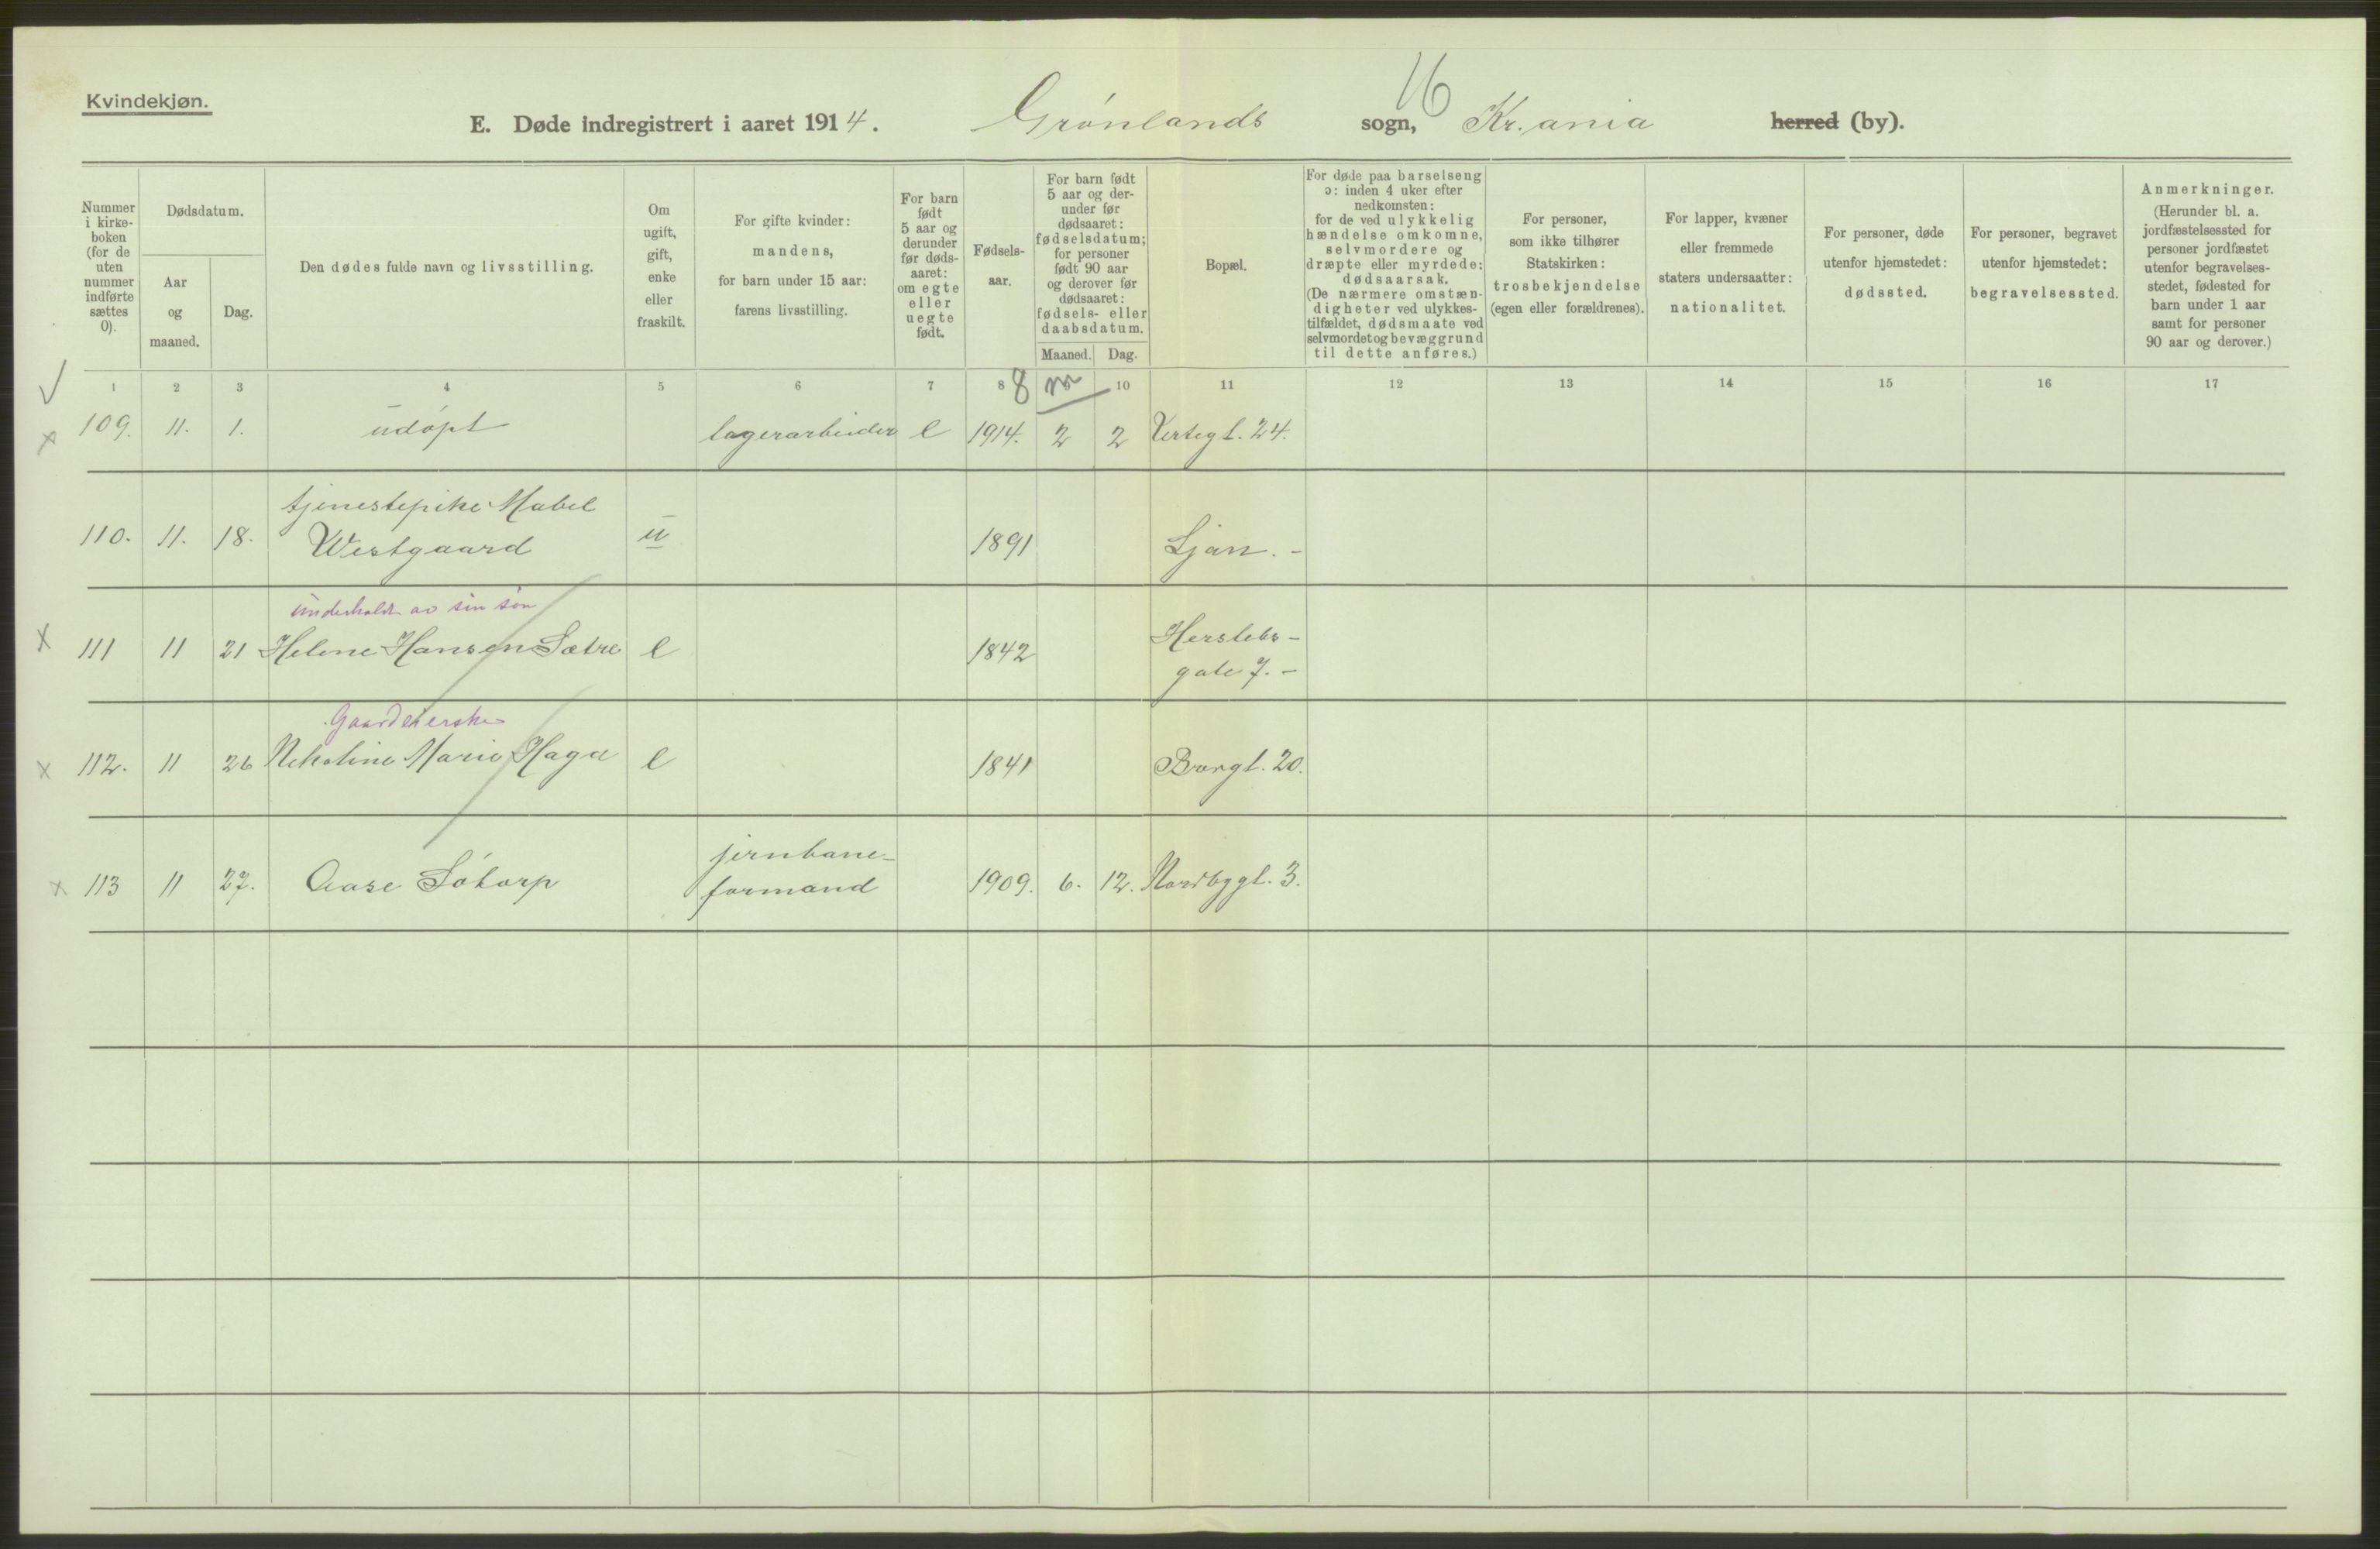 Kvindekjøn.
E. Døde indregistrert i aaret 1914. Grönlands sogn, Kr.ania herred (by).
16
Nummer i kirke-boken (for de uten nummer indførte sættes 0).
Dødsdatum.
Aar og maaned.
Dag.
Den dødes fulde navn og livsstilling.
Om ugift, gift, enke eller fraskilt.
For gifte kvinder: mandens, for barn under 15 aar: farens livsstilling.
For barn født 5 aar og derunder før døds-aaret: om egte eller uegte født.
Fødsels-aar.
For barn født 5 aar og der-under før dødsaaret: fødselsdatum; for personer født 90 aar og derover før dødsaaret: fødsels- eller daabsdatum.
Maaned.
Dag.
Bopæl.
For døde paa barselseng ɔ: inden 4 uker efter nedkomsten: for de ved ulykkelig hændelse omkomne, selvmordere og dræpte eller myrdede: dødsaarsak. (De nærmere omstæn-digheter ved ulykkes-tilfældet, dødsmaate ved selvmordet og bevæggrund til dette anføres.)
For personer, som ikke tilhører Statskirken: trosbekjendelse (egen eller forældrenes).
For lapper, kvæner eller fremmede staters undersaatter: nationalitet.
For personer, døde utenfor hjemstedet: dødssted.
For personer, begravet utenfor hjemstedet: begravelsessted.
Anmerkninger. (Herunder bl. a. jordfæstelsessted for personer jordfæstet utenfor begravelses-stedet, fødested for barn under 1 aar samt for personer 90 aar og derover.)
1 2 3 4 5 6 7 8 10 11 12 13 14 15 16 17
8 m
109. 11. 1. udöpt lagerarbeider e 1914. 2 2 Verksgt. 24.
tjenestepike Mabel
110. 11. 18. Westgaard u 1891 Ljan. -
underholdt av sin sön
111 11 21 Helene Hansen Sætre e 1842 Herslebs-
gate 7. -
Gaardeierske
112. 11 26 Nikoline Marie Haga e 1841 Borgt. 20.
jernbane-
113 11 27. Aase Sötorp formand 1909. 6. 12. Nordbygt. 3.